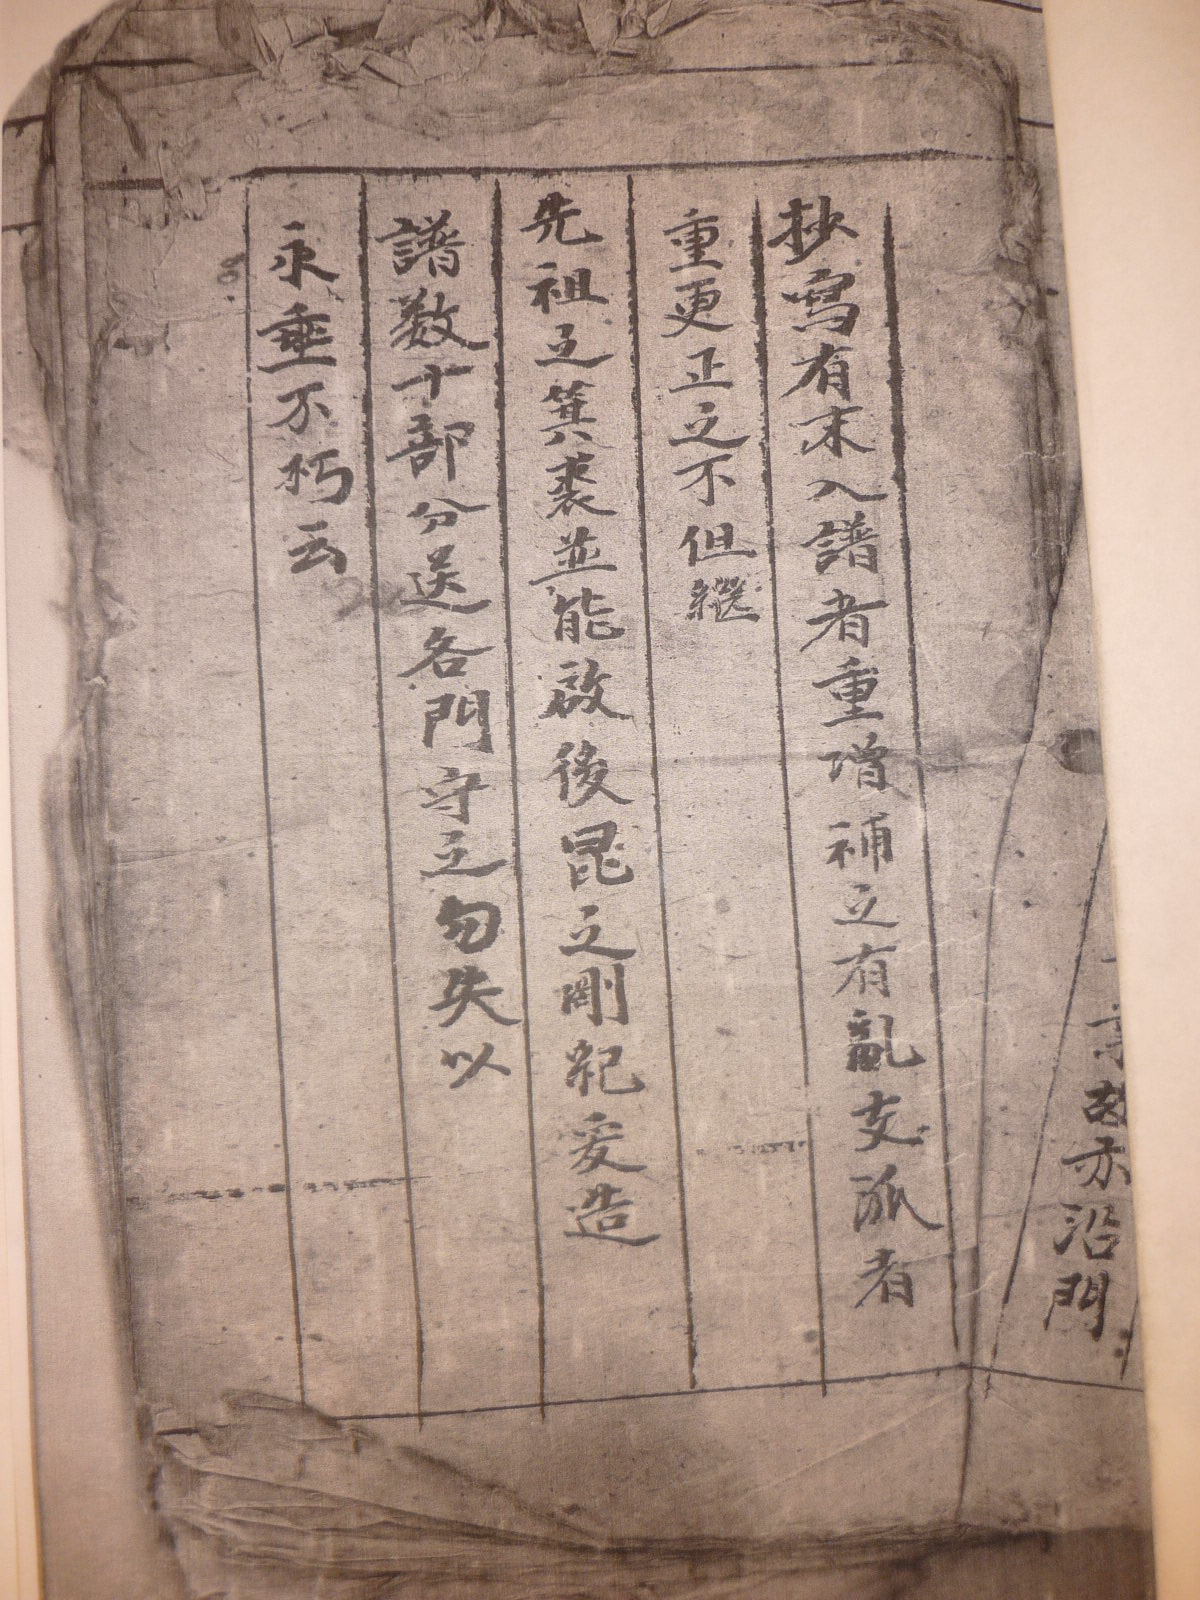 故亦沿門
抄寫有末入譜者重增補之有亂支派者
重更正之不但繼
先祖之箕裘並能啟後昆之剛紀爰造
譜数十部分送各門守之勿失以
永垂不朽云